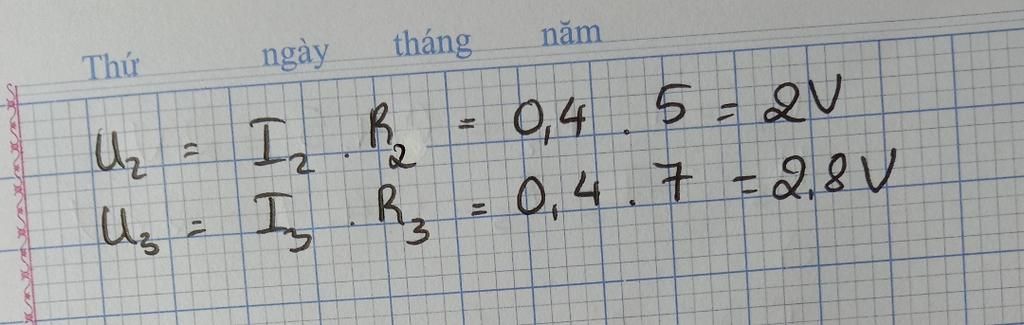 Thứ ngày tháng năm
U₂ = I₂ . R₂ = 0,4 . 5 = 2V
U₃ = I₃ . R₃ = 0,4 . 7 = 2,8V